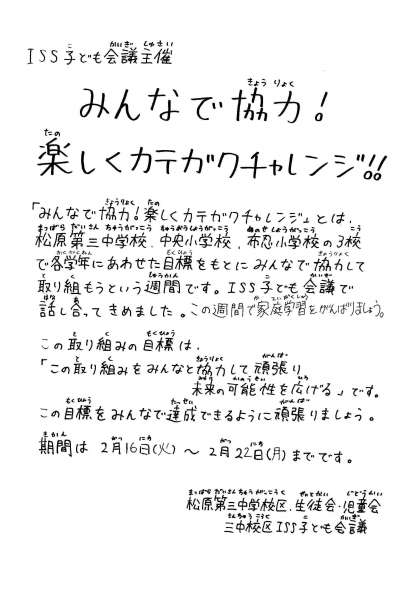 ISS子ども会議主催
みんなで協力!
楽しくカテガクチャレンジ!!
「みんなで協力!楽しくカテガクチャレンジ」とは、
松原第三中学校、中央小学校、布忍小学校の3校
で各学年にあわせた目標をもとにみんなで協力して
取り組もうという週間です。ISS子ども会議で
話し合ってきめました。この週間で家庭学習をがんばりましょう。
この取り組みの目標は、
「この取り組みをみんなと協力して頑張り
未来の可能性を広げる」です。
この目標をみんなで達成できるように頑張りましょう。
期間は 2月16日(火) 〜 2月22日(月)までです。
松原第三中学校区、生徒会・児童会
三中校区ISS子ども会議